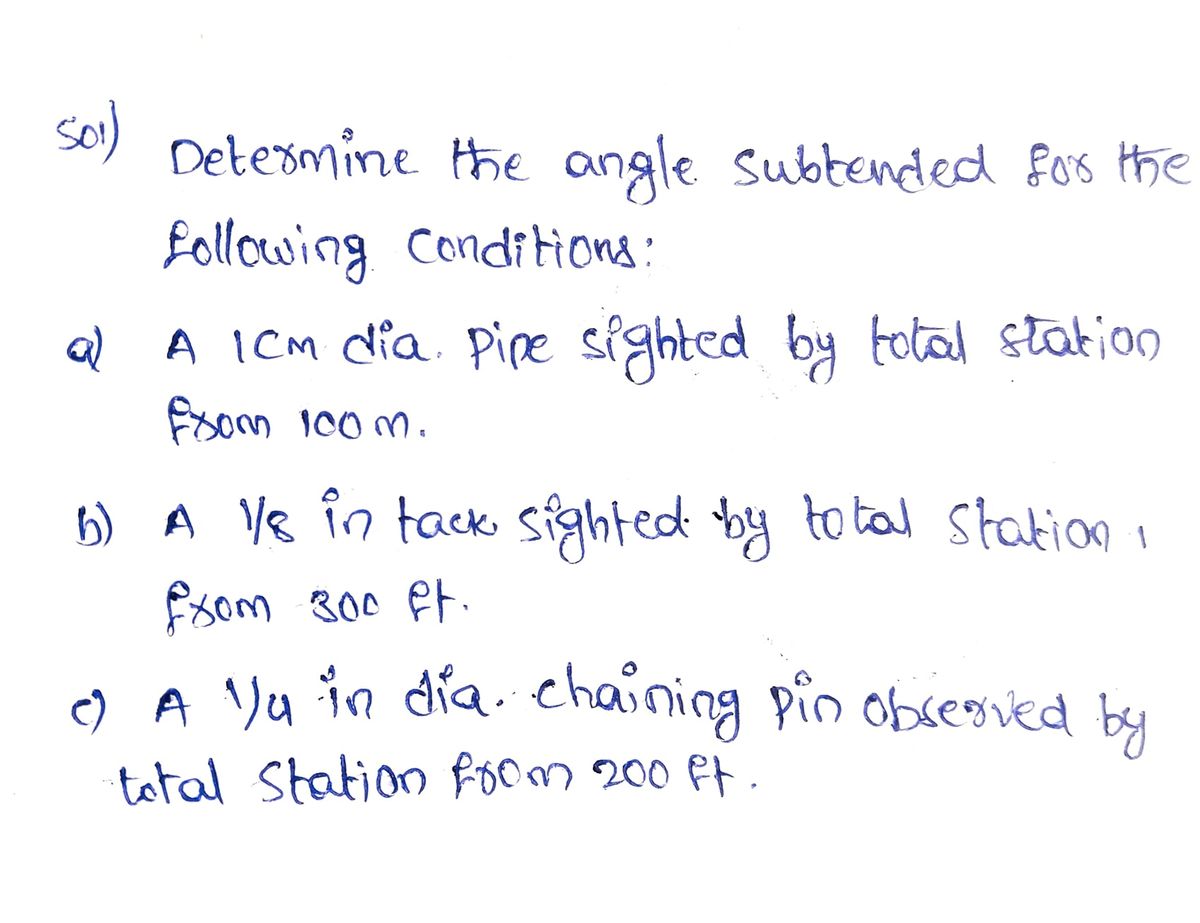 Sol)
Determine the angle subtended for the
following conditions:
a) A 1cm dia. pipe sighted by total station
from 100 m.
b) A 1/8 in tack sighted by total station,
from 300 ft.
c) A 1/4 in dia. chaining pin observed by
total station from 200 ft.